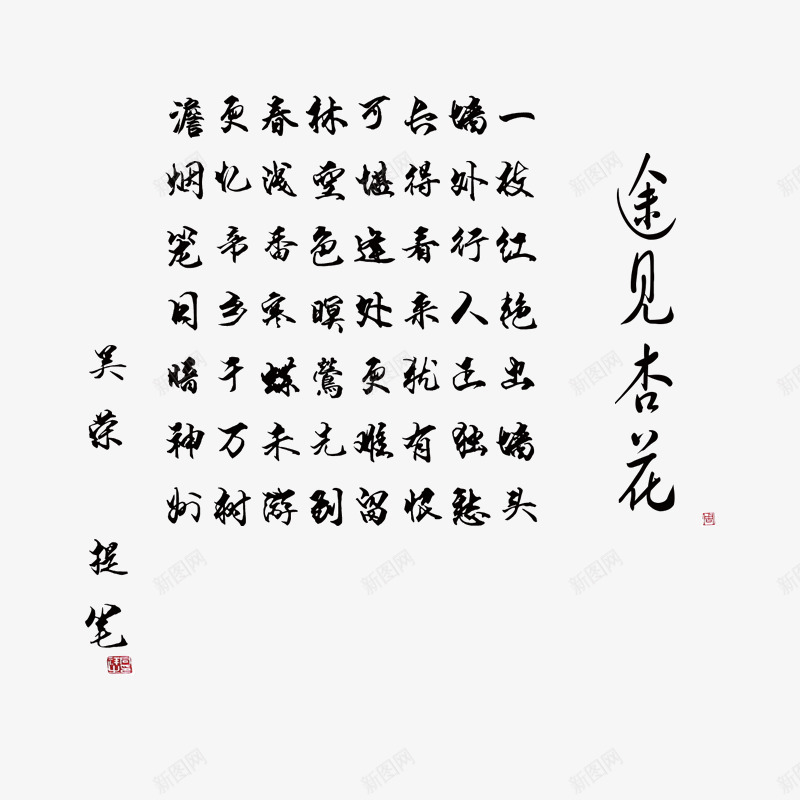 途见杏花
一枝红艳出墙头
墙外行人正独愁
长得看来犹有恨
可堪逢处更难留
林空色暝莺先到
春浅香寒蝶未游
更忆帝乡千万树
澹烟笼日暗神州
吴荣 提笔
新图网